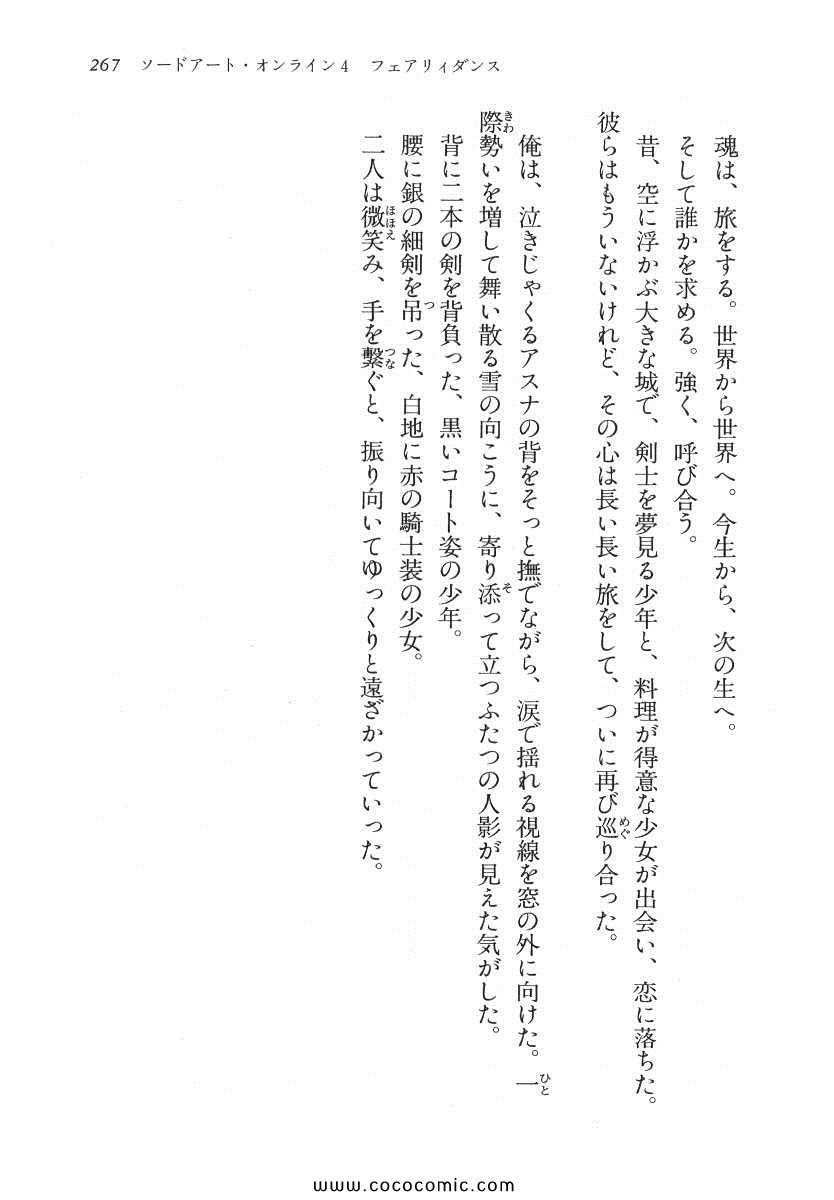 267 ソードアート・オンライン4 フェアリィダンス
魂は、旅をする。世界から世界へ。今生から、次の生へ。
そして誰かを求める。強く、呼び合う。
昔、空に浮かぶ大きな城で、剣士を夢見る少年と、料理が得意な少女が出会い、恋に落ちた。
彼らはもういないけれど、その心は長い長い旅をして、ついに再び巡り合った。
俺は、泣きじゃくるアスナの背をそっと撫でながら、涙で揺れる視線を窓の外に向けた。一
際勢いを増して舞い散る雪の向こうに、寄り添って立つふたつの人影が見えた気がした。
背に二本の剣を背負った、黒いコート姿の少年。
腰に銀の細剣を吊った、白地に赤の騎士装の少女。
二人は微笑み、手を繋ぐと、振り向いてゆっくりと遠ざかっていった。
www.cococomic.com